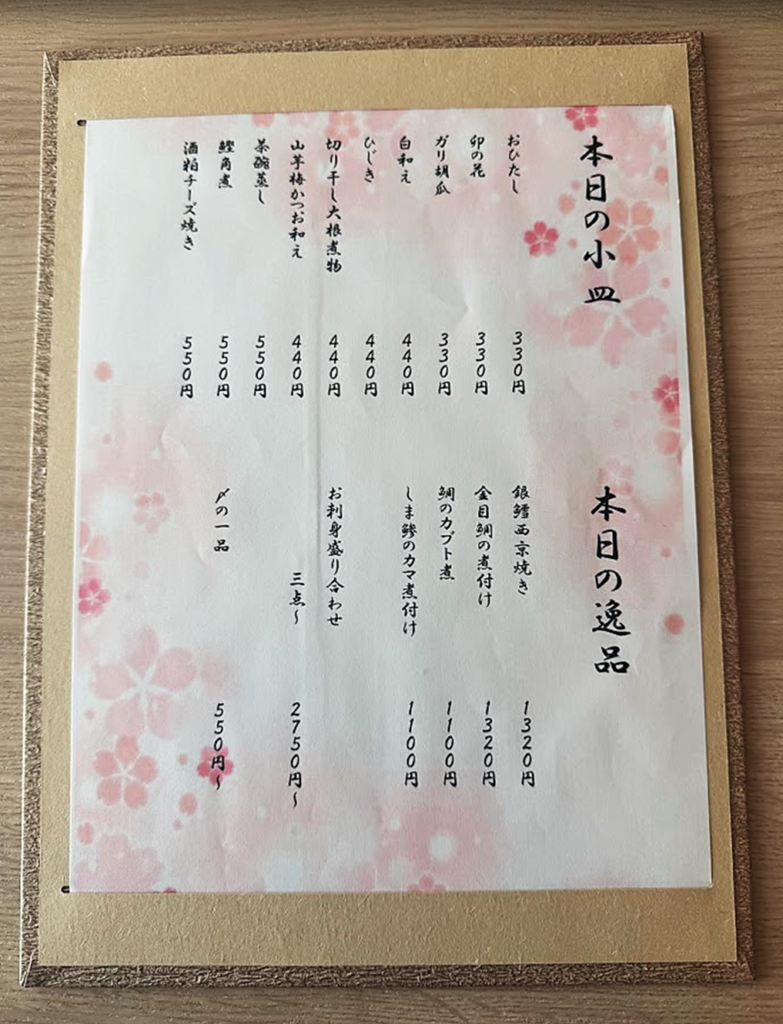 本日の小皿
おひたし 330円
卯の花 330円
ガリ胡瓜 330円
白和え 440円
ひじき 440円
切り干し大根煮物 440円
山芋梅かつお和え 440円
茶碗蒸し 550円
鰹角煮 550円
酒粕チーズ焼き 550円
本日の逸品
銀鱈西京焼き 1320円
金目鯛の煮付け 1320円
鯛のカブト煮 1100円
しま鯵のカマ煮付け 1100円
お刺身盛り合わせ
三点～ 2750円～
〆の一品 550円～